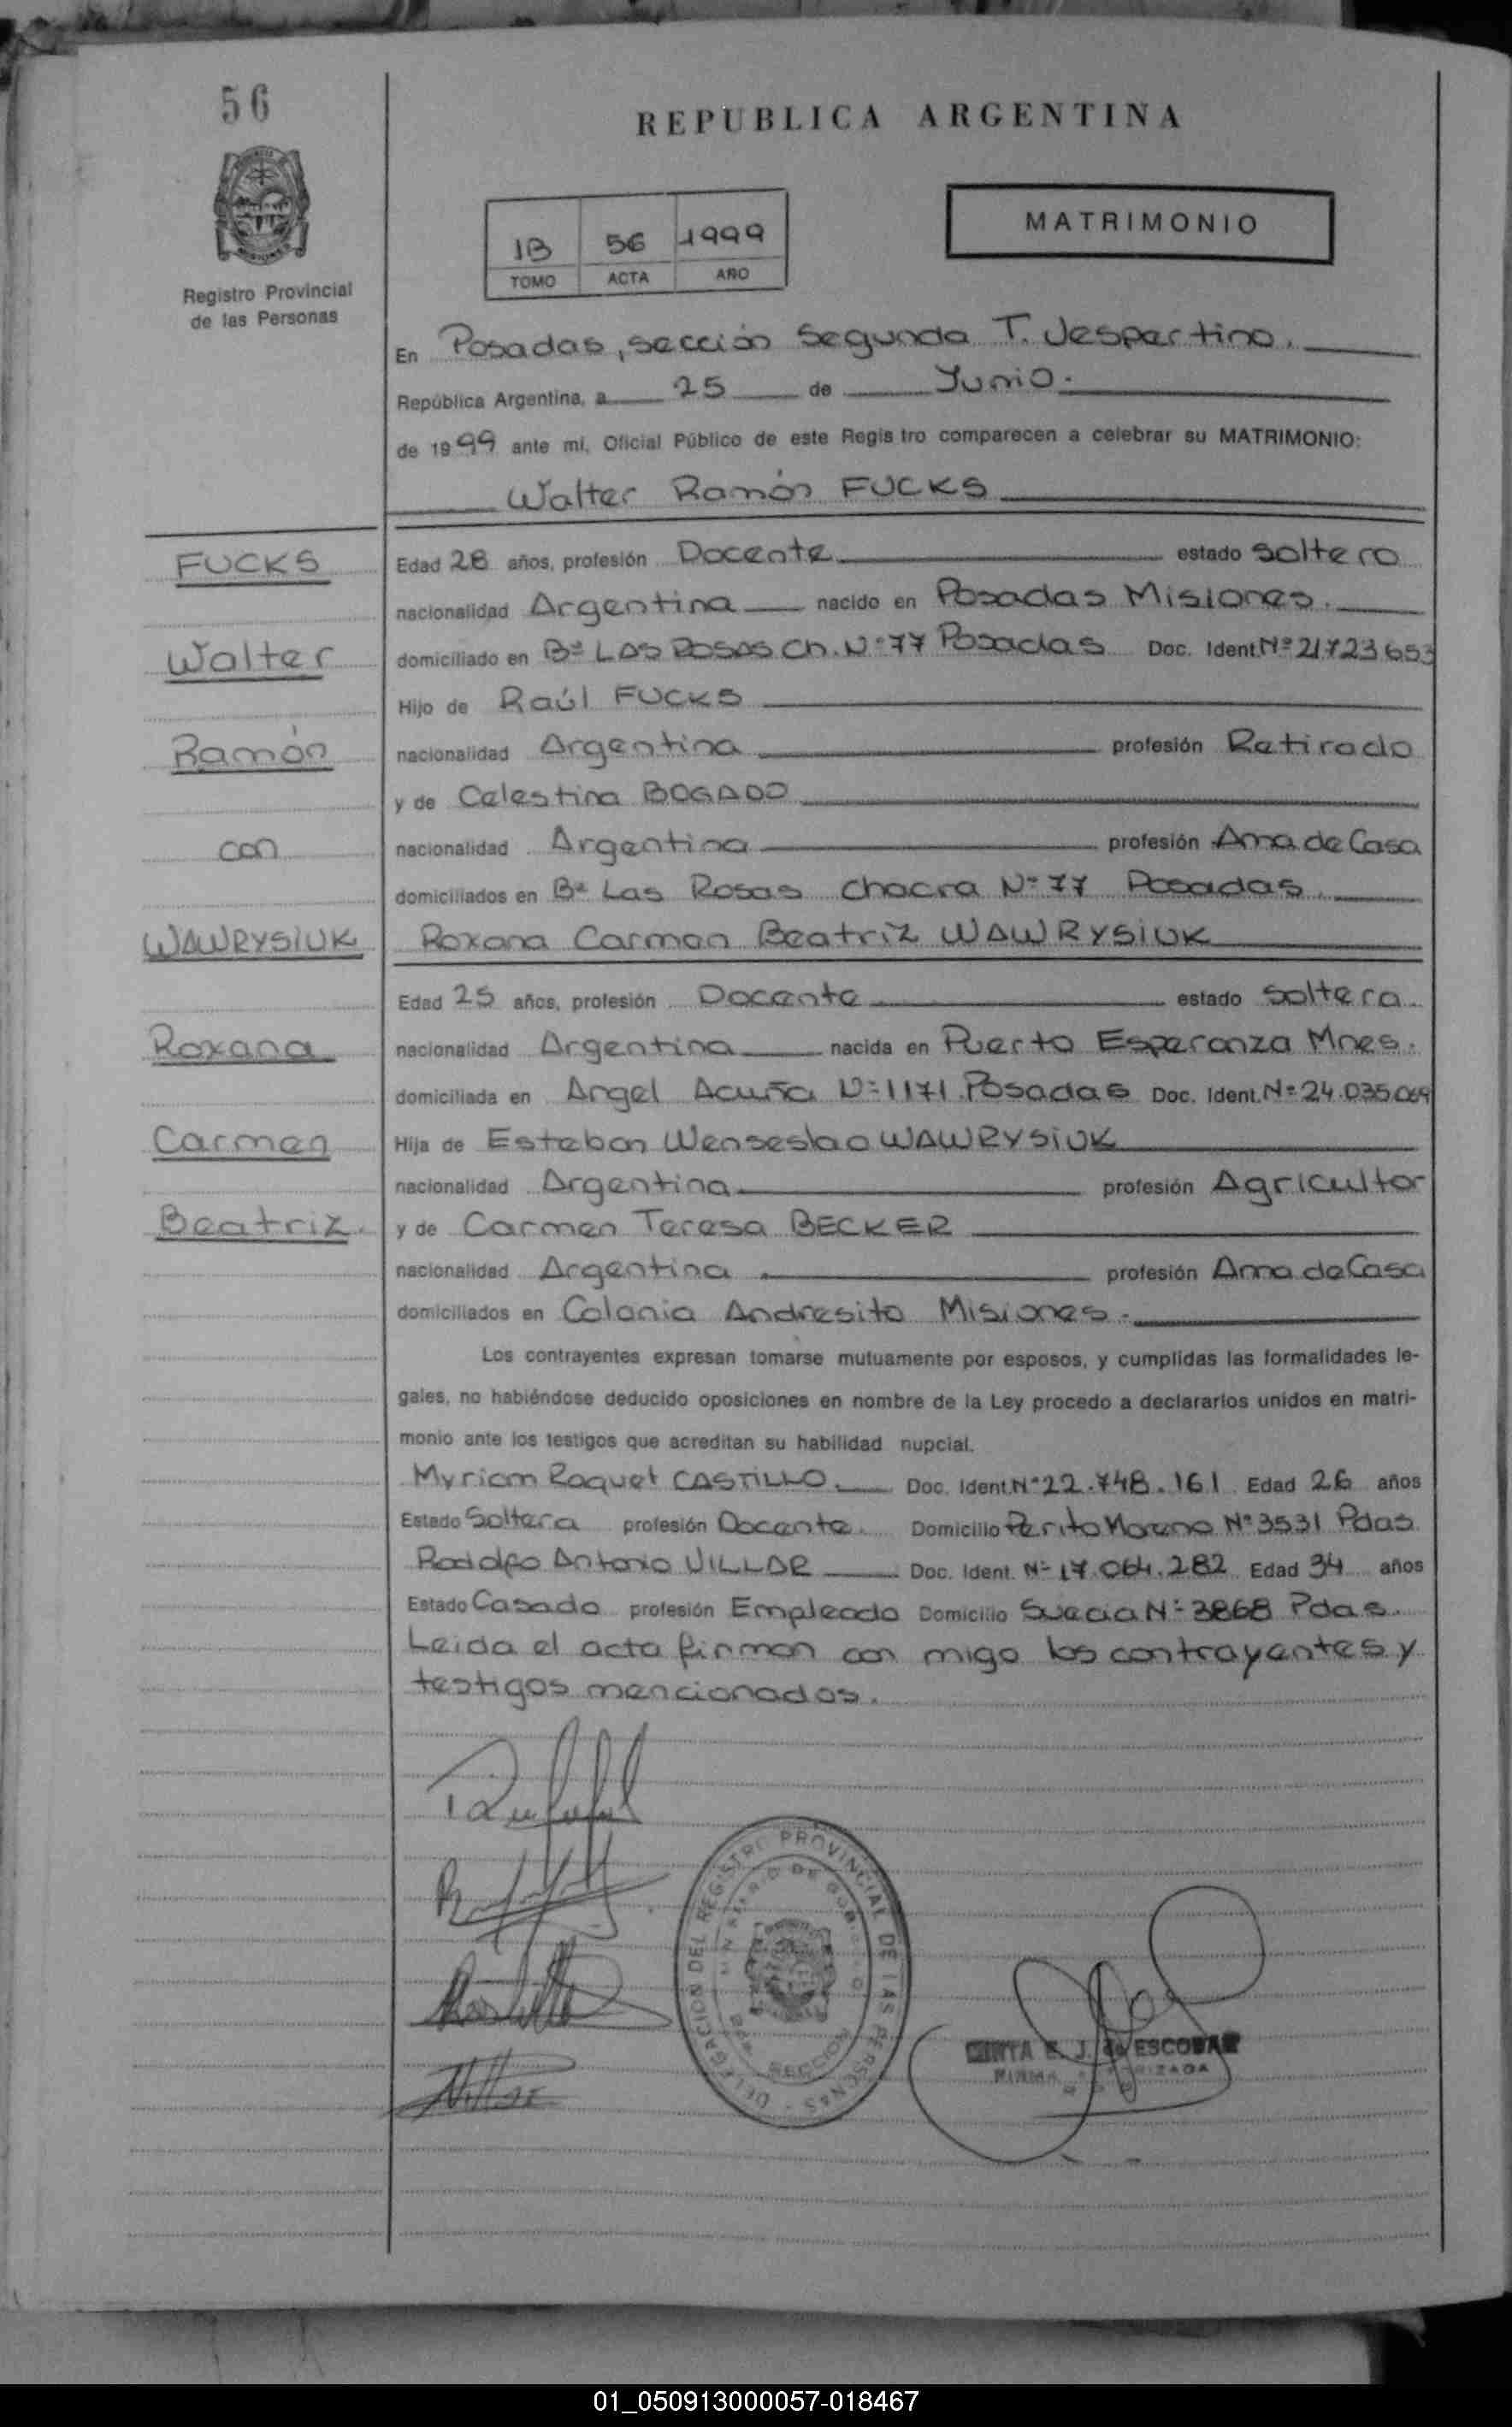 56
REPUBLICA ARGENTINA
1B 56 1999
TOMO ACTA AÑO
MATRIMONIO
Registro Provincial
de las Personas
En Posadas, sección Segunda T. Vespertino.
República Argentina, a 25 de Junio.
de 1999 ante mí, Oficial Público de este Regis tro comparecen a celebrar su MATRIMONIO:
Walter Ramón FUCKS
FUCKS
Edad 28 años, profesión Docente estado soltero
nacionalidad Argentina nacido en Posadas Misiones.
Walter
domiciliado en Bº LAS ROSAS Ch. Nº 77 Posadas Doc. Ident. Nº 21723653
Hijo de Raúl FUCKS
Ramón
nacionalidad Argentina profesión Retirado
y de Celestina BOGADO
con
nacionalidad Argentina profesión Ama de Casa
domiciliados en Bº Las Rosas Chacra Nº 77 Posadas.
WAWRYSIUK
Roxana Carmen Beatriz WAWRYSIUK
Edad 25 años, profesión Docente estado soltera.
Roxana
nacionalidad Argentina nacida en Puerto Esperanza Mnes.
domiciliada en Angel Acuña Nº 1171 Posadas Doc. Ident. Nº 24.035.069
Carmen
Hija de Esteban Wenseslao WAWRYSIUK
nacionalidad Argentina profesión Agricultor
Beatriz.
y de Carmen Teresa BECKER
nacionalidad Argentina profesión Ama de Casa
domiciliados en Colonia Andresito Misiones.
Los contrayentes expresan tomarse mutuamente por esposos, y cumplidas las formalidades le-
gales, no habiéndose deducido oposiciones en nombre de la Ley procedo a declararlos unidos en matri-
monio ante los testigos que acreditan su habilidad nupcial.
Myriam Raquel CASTILLO. Doc. Ident. Nº 22.748.161 Edad 26 años
Estado Soltera profesión Docente. Domicilio Perito Moreno Nº 3531 Pdas
Rodolfo Antonio VILLAR Doc. Ident. Nº 17.064.282 Edad 34 años
Estado Casado profesión Empleado Domicilio Suecia Nº 3868 Pdas.
Leida el acta firman con migo los contrayentes y
testigos mencionados.
DELEGACION DEL REGISTRO PROVINCIAL DE LAS PERSONAS
MINISTERIO DE GOBIERNO
SECCION
E. J. de ESCOBAR
01_050913000057-018467